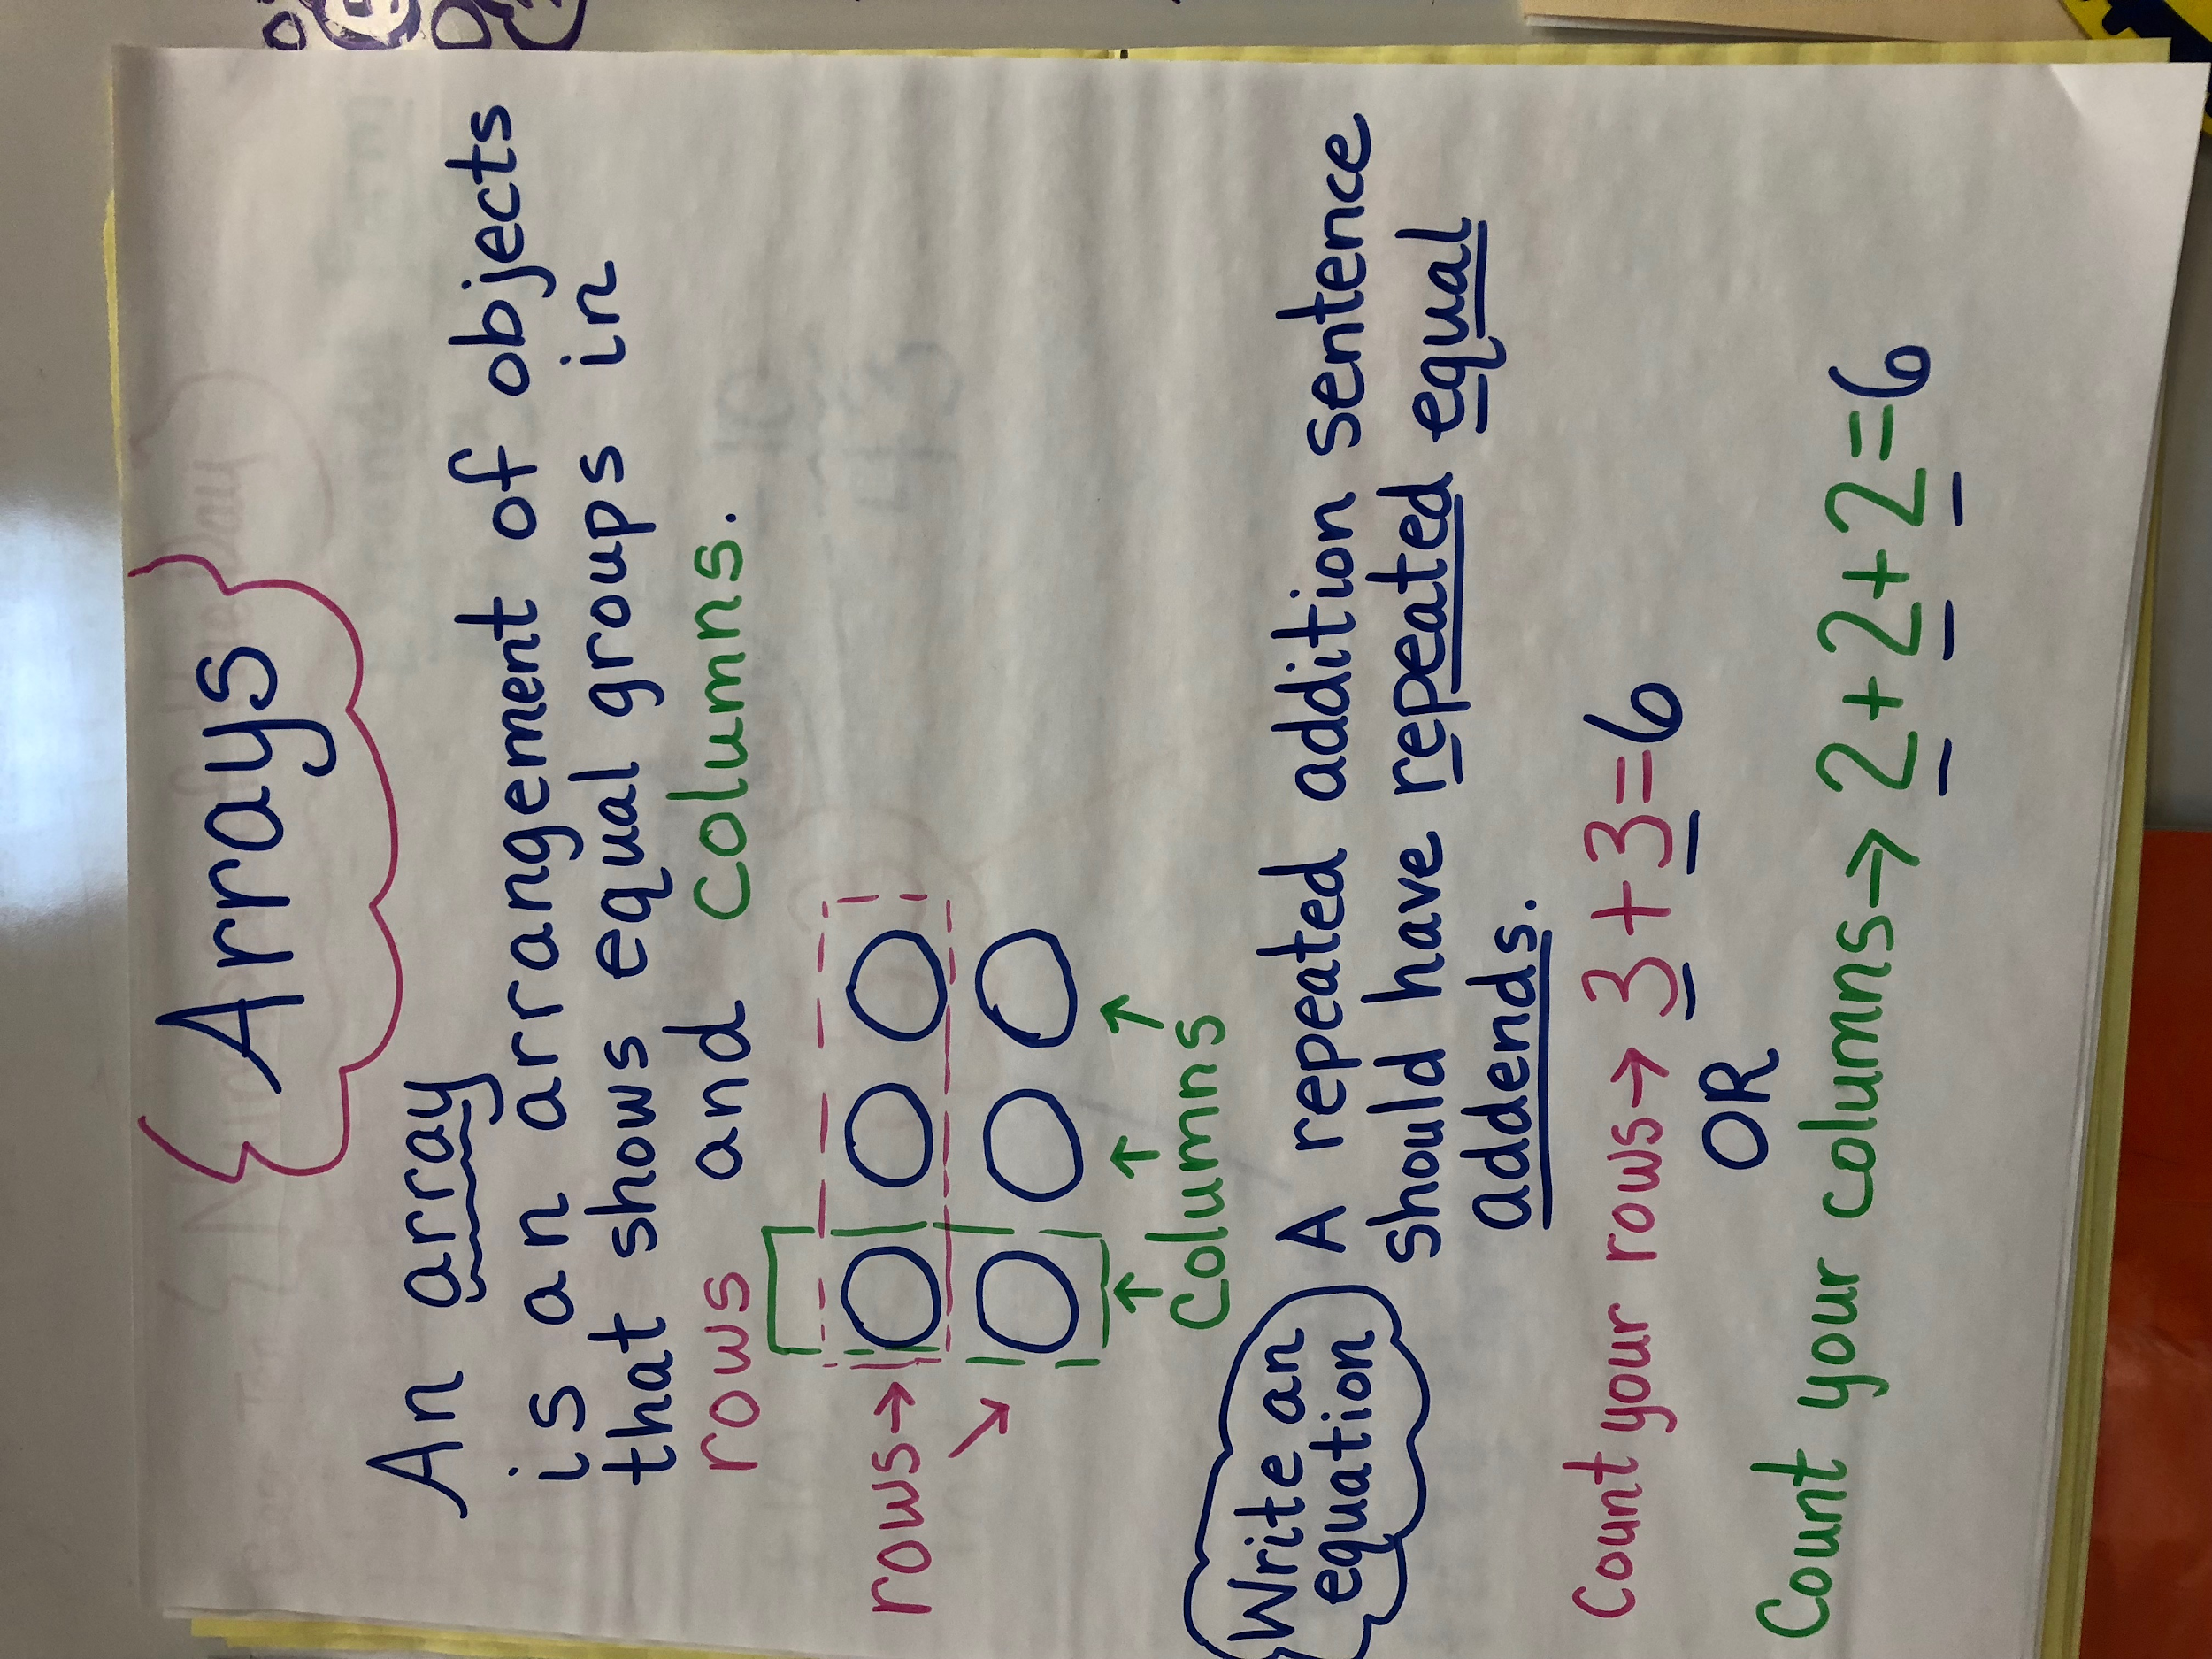 Arrays
An array
is an arrangement of objects
that shows equal groups in
rows and columns.
rows→
columns
Write an
equation
A repeated addition sentence
should have repeated equal
addends.
Count your rows→ 3+3=6
OR
Count your columns→ 2+2+2=6